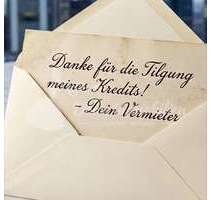 Danke für die Tilgung
meines Kredits!
- Dein Vermieter